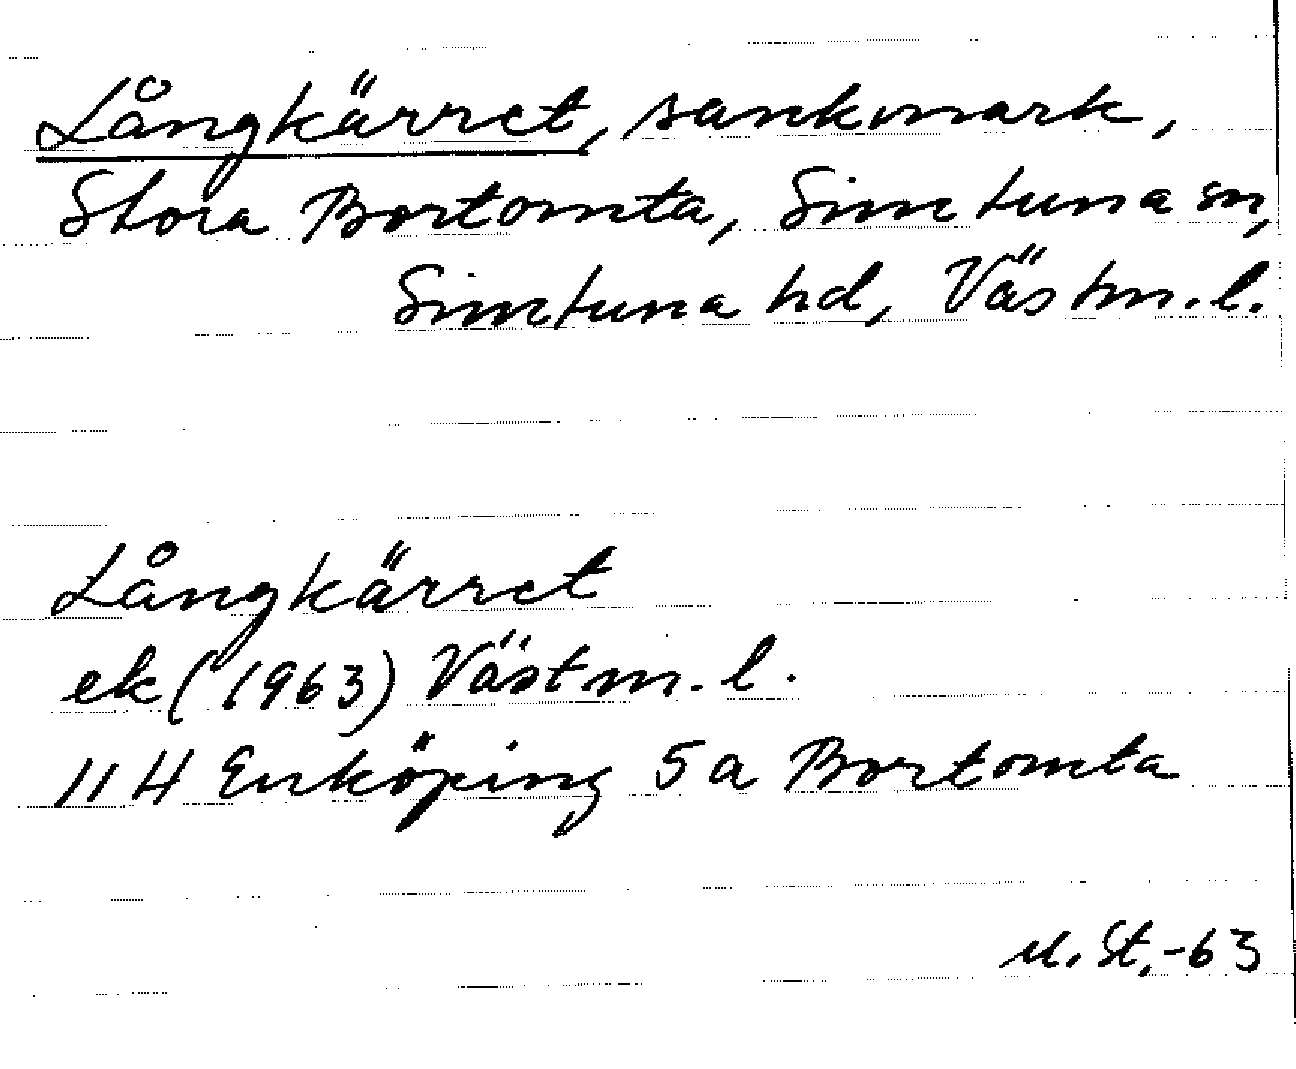 Långkärret, sankmark,
Stora Bortomta, Simtuna sn,
Simtuna hd, Västm. l.
Långkärret
ek (1963) Västm. l.
11 H Enköping 5 a Bortomta
M. St. -63